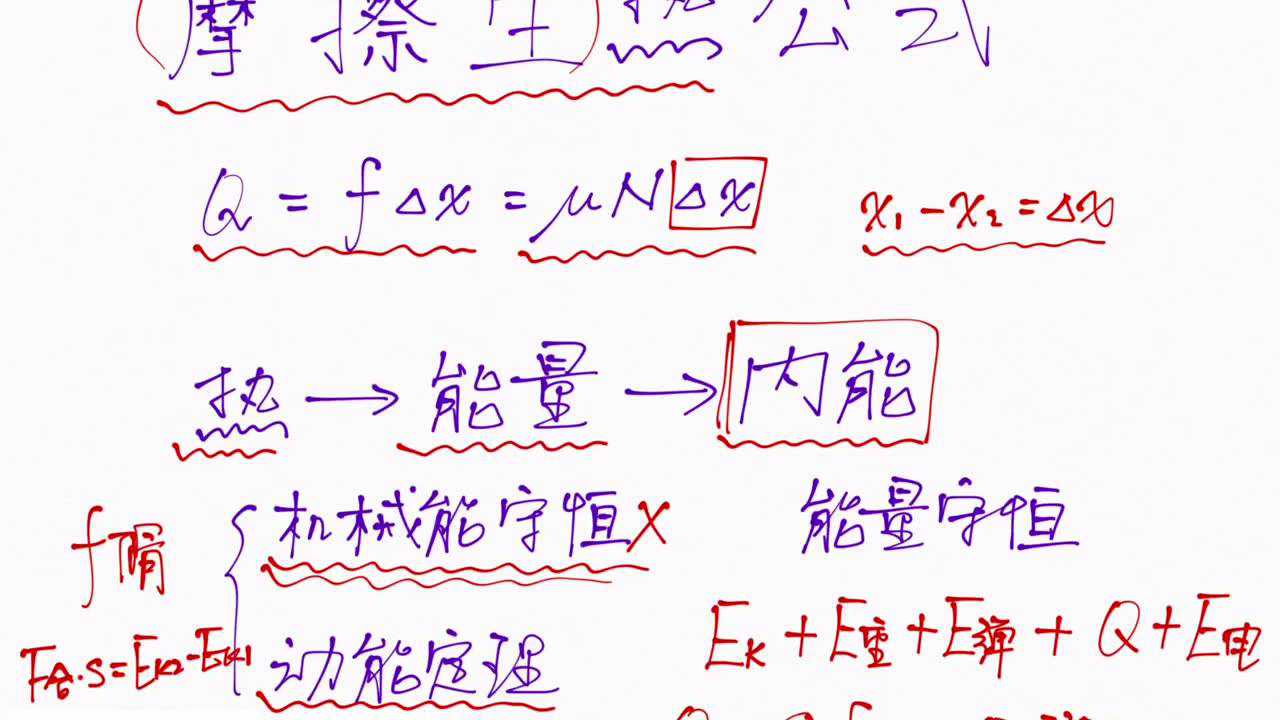 (摩擦生)热公式
Q = fΔx = μNΔx
x₁-x₂=Δx
热→能量→内能
f滑
机械能守恒X
能量守恒
F合·S=Ek2-Ek1
动能定理
Ek+E重+E弹+Q+E电